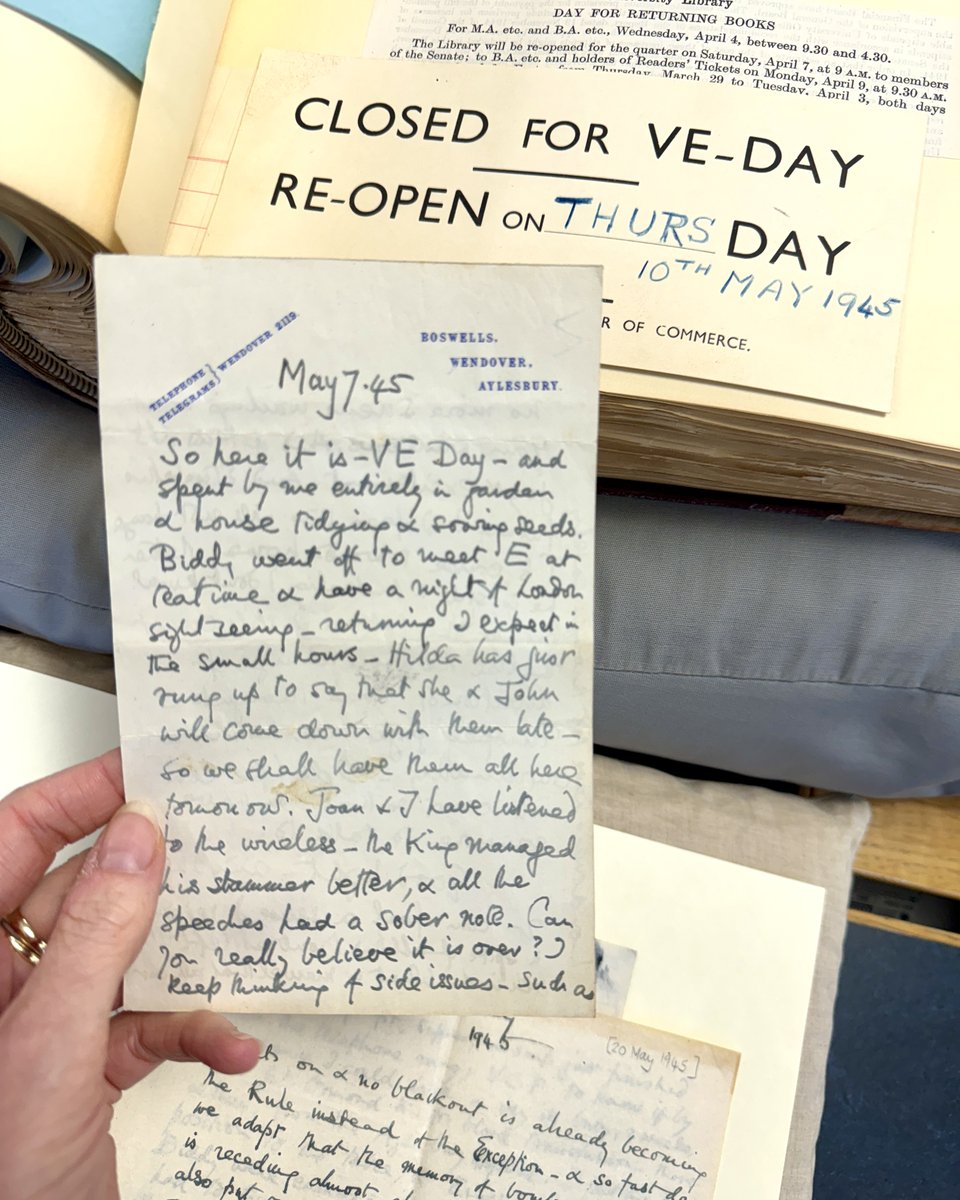 Library
DAY FOR RETURNING BOOKS
For M.A. etc. and B.A. etc., Wednesday, April 4, between 9.30 and 4.30.
The Library will be re-opened for the quarter on Saturday, April 7, at 9 A.M. to members
of the Senate; to B.A. etc. and holders of Readers' Tickets on Monday, April 9, at 9.30 A.M.
from Thursday, March 29 to Tuesday, April 3, both days
CLOSED FOR VE-DAY
RE-OPEN ON THURSDAY
10TH MAY 1945
R OF COMMERCE.
TELEPHONE } WENDOVER 2119.
TELEGRAMS
BOSWELLS,
WENDOVER,
AYLESBURY.
May 7.45
So here it is - VE Day - and
spent by me entirely in garden
& house tidying & sowing seeds.
Biddy went off to meet E at
teatime & have a night of London
sight seeing - returning I expect in
the small hours - Hilda has just
rung up to say that she & John
will come down with them late -
so we shall have them all here
tomorrow. Joan & I have listened
to the wireless - the King managed
his stammer better, & all the
speeches had a sober note. Can
you really believe it is over? I
keep thinking of side issues - such as
1945
[20 May 1945]
on & no blackout is already becoming
the Rule instead of the Exception - & so fast do
we adapt that the memory of
is receding almost
also put